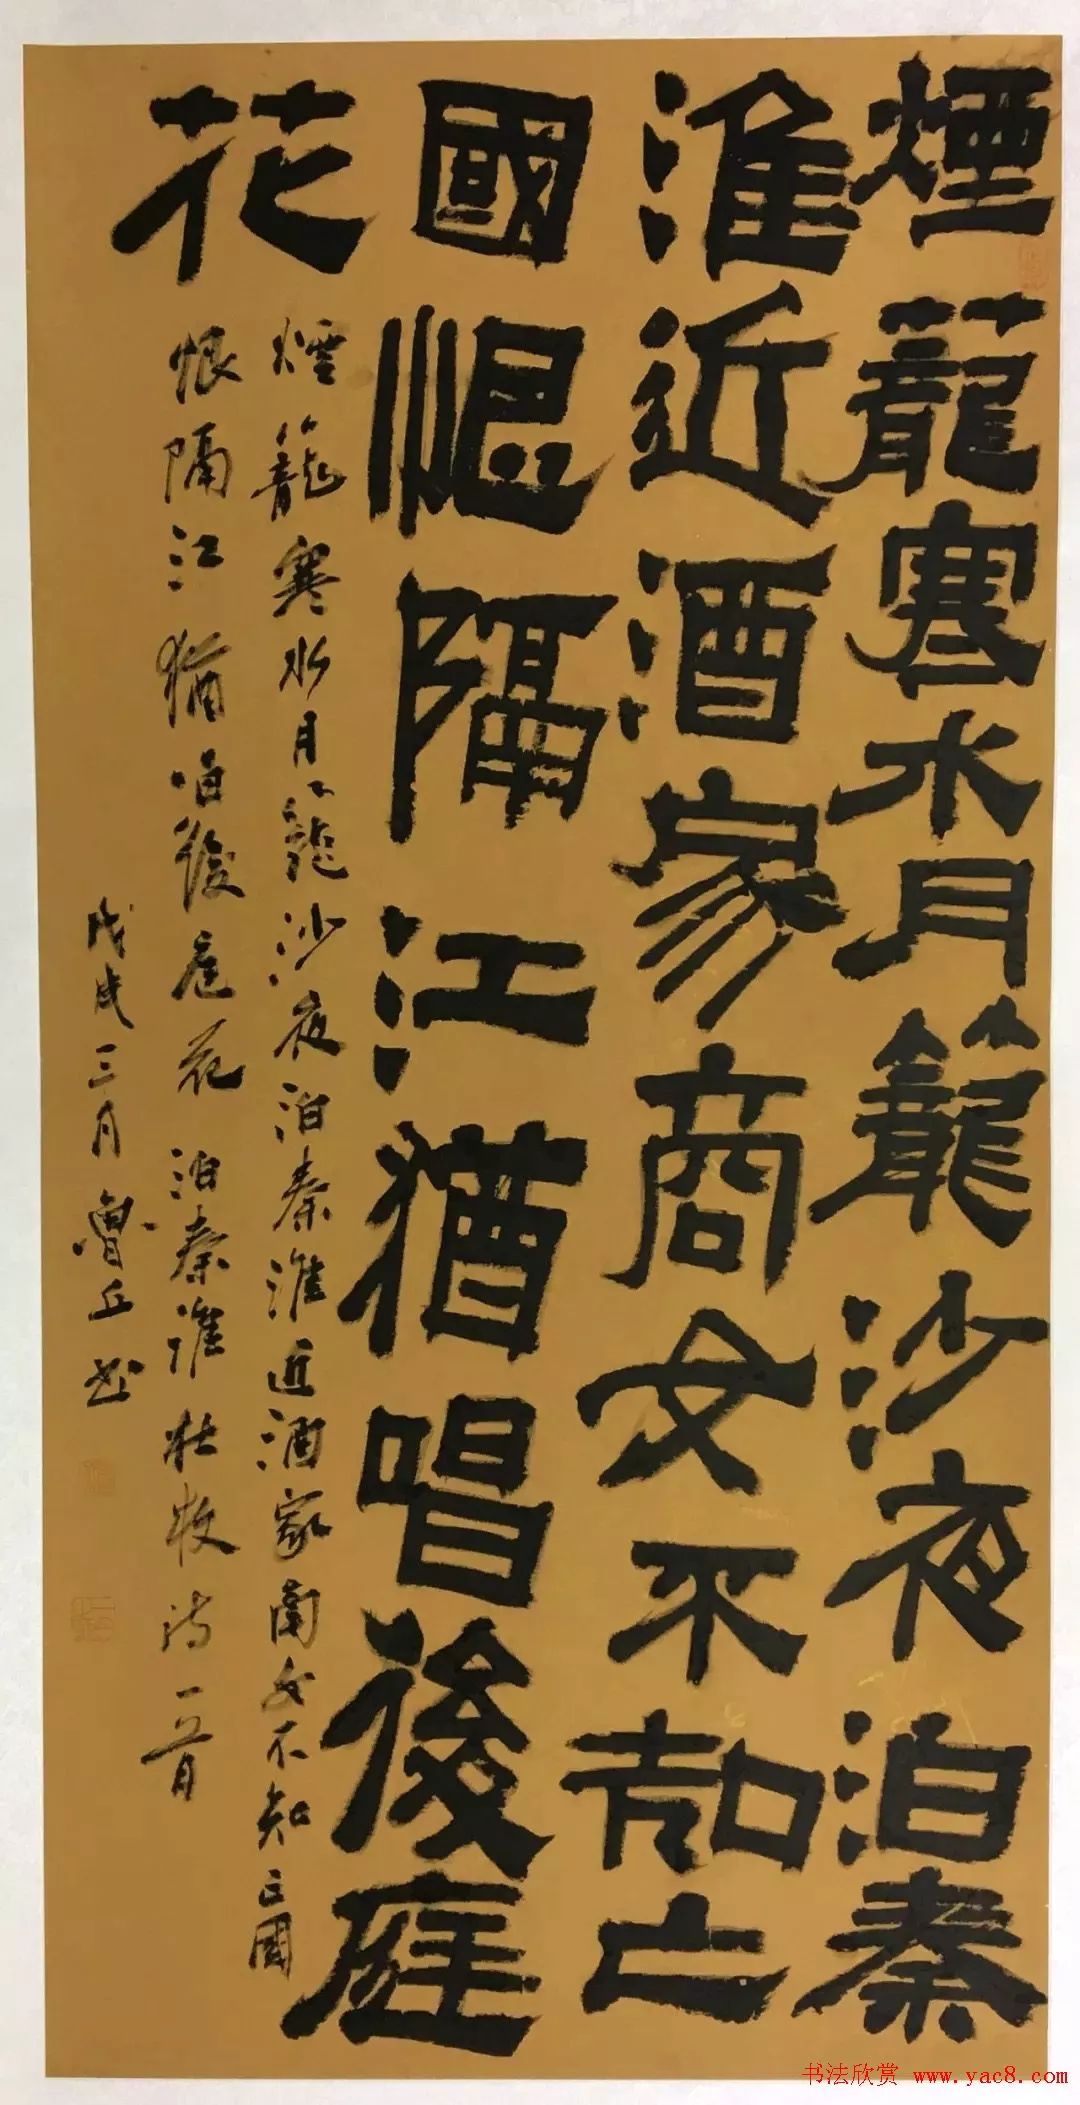 煙蘢寒水月籠沙夜泊秦
淮近酒家商女不知亡
國恨隔江猶唱後庭
花
煙籠寒水月籠沙夜泊秦淮近酒家商女不知亡國
恨隔江猶唱後庭花 泊秦淮 杜牧詩一首
戊戌三月魯丘书
书法欣赏 www.yac8.com